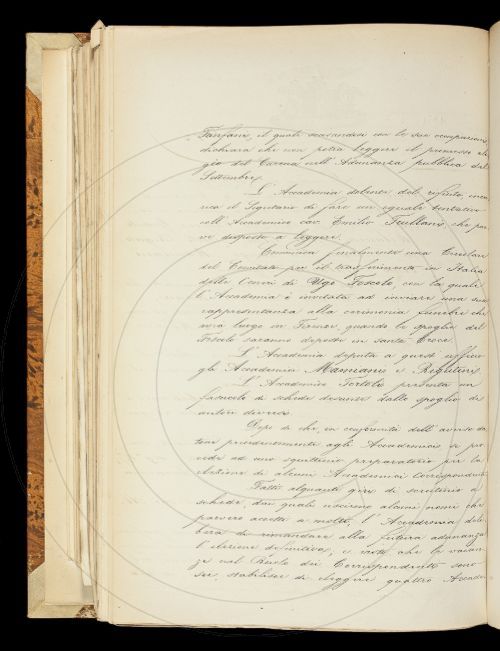 Fanfani, il quale scusandosi con le sue occupazioni
dichiara che non potrà leggere il promesso elo-
gio del Carena nell'Adunanza pubblica del
Settembre.
L'Accademia dolente del rifiuto, inca-
rica il Segretario di fare un eguale tentativo
coll'Accademico cav. Emilio Teulliano, che par-
ve disposto a leggere.
Comunica finalmente una Circolare
del Comitato per il trasferimento in Italia
delle Ceneri di Ugo Foscolo, con la quale
l'Accademia è invitata ad inviare una sua
rappresentanza alla cerimonia funebre che
avrà luogo in Firenze, quando le spoglie del
Foscolo saranno deposte in Santa Croce.
L'Accademia deputa a quest'ufficio
gli Accademici Mamiani e Rigutini.
L'Accademico Tortoli presenta un
fascicolo di schede desunte dallo spoglio di
autori diversi.
Dopo di che, in conformità dell'avviso da-
tone precedentemente agli Accademici si pro-
cede ad uno squittinio preparatorio per la
elezione di alcuni Accademici Corrispondenti.
Fatto alquanti giri di scrutinio a
schede, dai quali uscirono alcuni nomi che
parvero accetti a molti, l'Accademia deli-
bera di rimandare alla futura adunanza
l'elezione definitiva, e visto che le vacan-
ze nel Ruolo dei Corrispondenti sono
sei, stabilisce di eleggere quattro Accade-